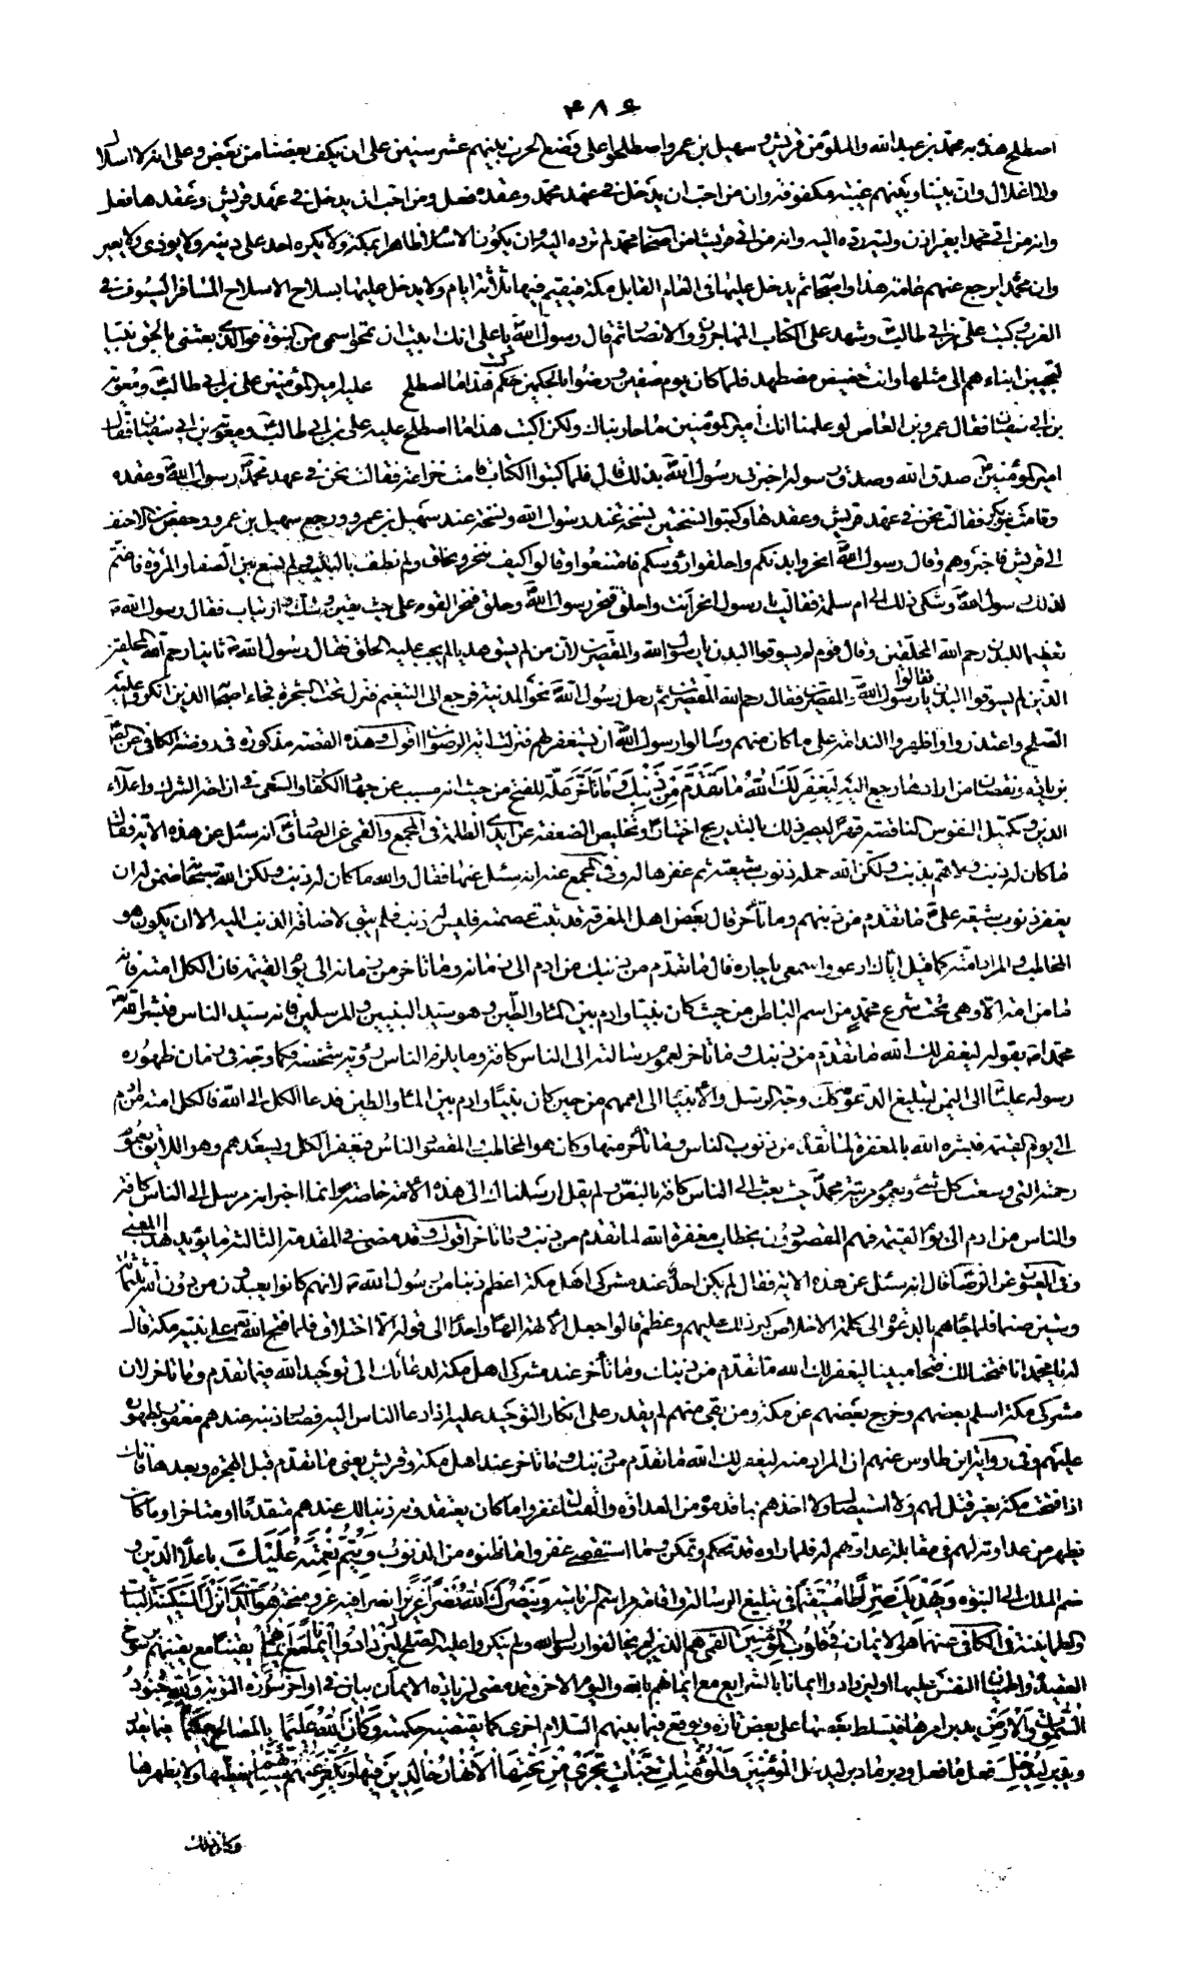 ۴۸۶
اصطلح هذا به محمد بن عبد الله والملأ من قريش وسهيل بن عمرو واصطلحوا على وضع الحرب بينهم عشر سنين على ان يكف بعضنا من بعض وعلى انه لا اسلال
ولا اغلال وان بيننا وبينهم عيبة مكفوفة وان من احب ان يدخل في عهد محمد وعقده فعل ومن احب ان يدخل في عهد قريش وعقدها فعل
وانه من اتى محمدا بغير اذن وليه رده اليه وانه من اتى قريشا من اصحاب محمد لم ترده اليه وان يكون الاسلام ظاهرا بمكة ولا يكره احد على دينه ولا يوذى ولا يعير
وان محمدا يرجع عنهم عامه هذا واصحابه ثم يدخل علينا في العام القابل مكة فيقيم فيها ثلاثة ايام ولا يدخل علينا بسلاح الا سلاح المسافر السيوف في
القرب وكتب علي بن ابي طالب وشهد على الكتاب المهاجرون والانصار ثم قال رسول الله يا علي انك ابيت ان تمحو اسمي من النبوة فوالذي بعثني بالحق نبيا
لتجيبن ابناءهم الى مثلها وانت مضيض مضطهد فلما كان يوم صفين ورضوا بالحكمين كتب هذا ما اصطلح عليه امير المؤمنين علي بن ابي طالب ومعوية
بن ابي سفيان فقال عمرو بن العاص لو علمنا انك امير المؤمنين ما حاربناك ولكن اكتب هذا ما اصطلح عليه علي بن ابي طالب ومعوية بن ابي سفيان فقال
امير المؤمنين صدق الله وصدق رسوله اخبرني رسول الله بذلك قال فلما كتبوا الكتاب قامت خزاعة فقالت نحن في عهد محمد رسول الله وعقده
وقامت بنو بكر فقالت نحن في عهد قريش وعقدها وكتبوا نسختين نسخة عند رسول الله ونسخة عند سهيل بن عمرو ورجع سهيل بن عمرو وحفص بن الاحنف
الى قريش فاخبروهم وقال رسول الله انحروا بدنكم واحلقوا رؤسكم فامتنعوا وقالوا كيف ننحر ونحلق ولم نطف بالبيت ولم نسع بين الصفا والمروة فاغتم
لذلك رسول الله وشكى ذلك الى ام سلمة فقالت يا رسول انحر انت واحلق فنحر رسول الله وحلق فنحر القوم على حيث يقين وشك وارتياب فقال رسول الله
تعظيما للبدن رحم الله المحلقين وقال قوم لم يسوقوا البدن يا رسول الله والمقصرين لان من لم يسق هديا لم يجب عليه الحلق فقال رسول الله ثانيا رحم الله المحلقين
الذين لم يسوقوا البدن فقالوا يا رسول الله والمقصرين فقال رحم الله المقصرين ثم رحل رسول الله نحو المدينة فرجع الى التنعيم فنزل تحت الشجرة فجاء اصحابه الذين انكروا عليه
الصلح واعتذروا واظهروا الندامة على ما كان منهم وسألوا رسول الله ان يستغفر لهم فنزلت اية الرضوان اقول وهذه القصة مذكورة في روضة الكافي عن الصادق
بزيادة ونقصان من ارادها رجع اليه لِيَغْفِرَ لَكَ اللهُ مَا تَقَدَّمَ مِنْ ذَنْبِكَ وَمَا تَأَخَّرَ علة للفتح من حيث انه مسبب عن جهاد الكفار والسعي في ازاحة الشرك واعلاء
الدين وتكميل النفوس الناقصة قهرا ليصير ذلك بالتدريج اختيارا وتخليص الضعفة عن ايدي الظلمة في المجمع والقمي عن الصادق انه سئل عن هذه الاية فقال
ما كان له ذنب ولا هم بذنب ولكن الله حمله ذنوب شيعته ثم غفرها له وفي المجمع عنه انه سئل عنها فقال والله ما كان له ذنب ولكن الله سبحانه ضمن له ان
يغفر ذنوب شيعة علي ما تقدم من ذنبهم وما تأخر قال بعض اهل المعرفة قد ثبت عصمته فليس له ذنب فلم يبق لاضافة الذنب اليه الا ان يكون هو
المخاطب والمراد امته كما قيل اياك ادعو واسمعي يا جارة قال ما تقدم من ذنبك من ادم الى زمانه وما تاخر من زمانه الى يوم القيمة فان الكل امته فانه
ما من امة الا وهي تحت شرع محمد من اسم الباطن من حيث كان نبيا وادم بين الماء والطين وهو سيد النبيين والمرسلين فانه سيد الناس فبشر الله
محمدا بقوله ليغفر لك الله ما تقدم من ذنبك وما تاخر لعموم رسالته الى الناس كافة وما يلزم الناس رؤية شخصه فكما وجه في زمان ظهوره
رسوله عليا الى اليمن لتبليغ الدعوة كذلك وجه الرسل والانبياء الى اممهم من حين كان نبيا وادم بين الماء والطين فدعا الكل الى الله فالكل امته من ادم
الى يوم القيمة فبشره الله بالمغفرة لما تقدم من ذنوب الناس وما تأخر منها وكان هو المخاطب والمقصود الناس فيغفر الكل ويسعدهم وهو اللائق بعموم
رحمته التي وسعت كل شيء وبعموم مرتبة محمد حيث بعث الى الناس كافة بالنص ولم يقل ارسلناك الى هذه الامة خاصة وانما اخبر انه مرسل الى الناس كافة
والناس من ادم الى يوم القيمة فهم المقصودون بخطاب مغفرة الله لما تقدم من ذنب وما تاخر اقول وقد مضى في المقدمة الثالثة ما يؤيد هذا المعنى
وفي العيون عن الرضا قال انه سئل عن هذه الاية فقال لم يكن احد عند مشركي اهل مكة اعظم ذنبا من رسول الله لانهم كانوا يعبدون من دون الله ثلثمائة
وستين صنما فلما جاءهم بالدعوة الى كلمة الاخلاص كبر ذلك عليهم وعظم قالوا اجعل الالهة الها واحدا الى قوله الا اختلاق فلما فتح الله تعالى على نبيه مكة قال
له يا محمد انا فتحنا لك فتحا مبينا ليغفر لك الله ما تقدم من ذنبك وما تأخر عند مشركي اهل مكة بدعائك الى توحيد الله فيما تقدم وما تاخر لان
مشركي مكة اسلم بعضهم وخرج بعضهم عن مكة ومن بقي منهم لم يقدر على انكار التوحيد عليه اذا دعا الناس اليه فصار ذنبه عندهم مغفورا بظهوره
عليهم وفي رواية ابن طاوس عنهم ان المراد منه ليغفر لك الله ما تقدم من ذنبك وما تاخر عند اهل مكة وقريش يعني ما تقدم قبل الهجرة وبعدها فانك
اذا فتحت مكة بغير قتل لهم ولا استيصال ولا اخذهم بما قدموه من العداوة والقتال غفروا ما كان يعتقدونه ذنبا لك عندهم متقدما او متاخرا وما كان
يظهر من عداوته لهم في مقابلة عداوتهم له فلما راوه قد تحكم وتمكن وما استقصى غفروا ما ظنوه من الذنوب وَيُتِمَّ نِعْمَتَهُ عَلَيْكَ باعلاء الدين و
ضم الملك الى النبوة وَيَهْدِيَكَ صِرَاطًا مُسْتَقِيمًا في تبليغ الرسالة واقامة مراسم الرياسة وَيَنْصُرَكَ اللهُ نَصْرًا عَزِيزًا نصرا فيه عز ومنعة هُوَ الَّذِي أَنْزَلَ السَّكِينَةَ الثبات
والطمانينة في الكافي عنهما هو الايمان فِي قُلُوبِ الْمُؤْمِنِينَ القمي هم الذين لم يخالفوا رسول الله ولم ينكروا عليه الصلح لِيَزْدَادُوا إِيمَانًا مَعَ إِيمَانِهِمْ يقينا مع يقينهم برسوخ
العقيدة واطمينان النفس عليها او ليزدادوا ايمانا بالشرايع مع ايمانهم بالله واليوم الاخر وقد مضى لزيادة الايمان بيان في اواخر سورة التوبة وَلِلَّهِ جُنُودُ
السَّمٰوَاتِ وَالْأَرْضِ يدبر امرها فيسلط بعضها على بعض تارة ويوقع فيما بينهم السلم اخرى كما يقتضيه حكمته وَكَانَ اللهُ عَلِيمًا بالمصالح حَكِيمًا فيما يقدر
ويدبر لِيُدْخِلَ فعل ما فعل ودبر ما دبر ليدخل الْمُؤْمِنِينَ وَالْمُؤْمِنَاتِ جَنَّاتٍ تَجْرِي مِنْ تَحْتِهَا الْأَنْهَارُ خَالِدِينَ فِيهَا وَيُكَفِّرَ عَنْهُمْ سَيِّئَاتِهِمْ يغطيها ولا يظهرها
وكان ذلك